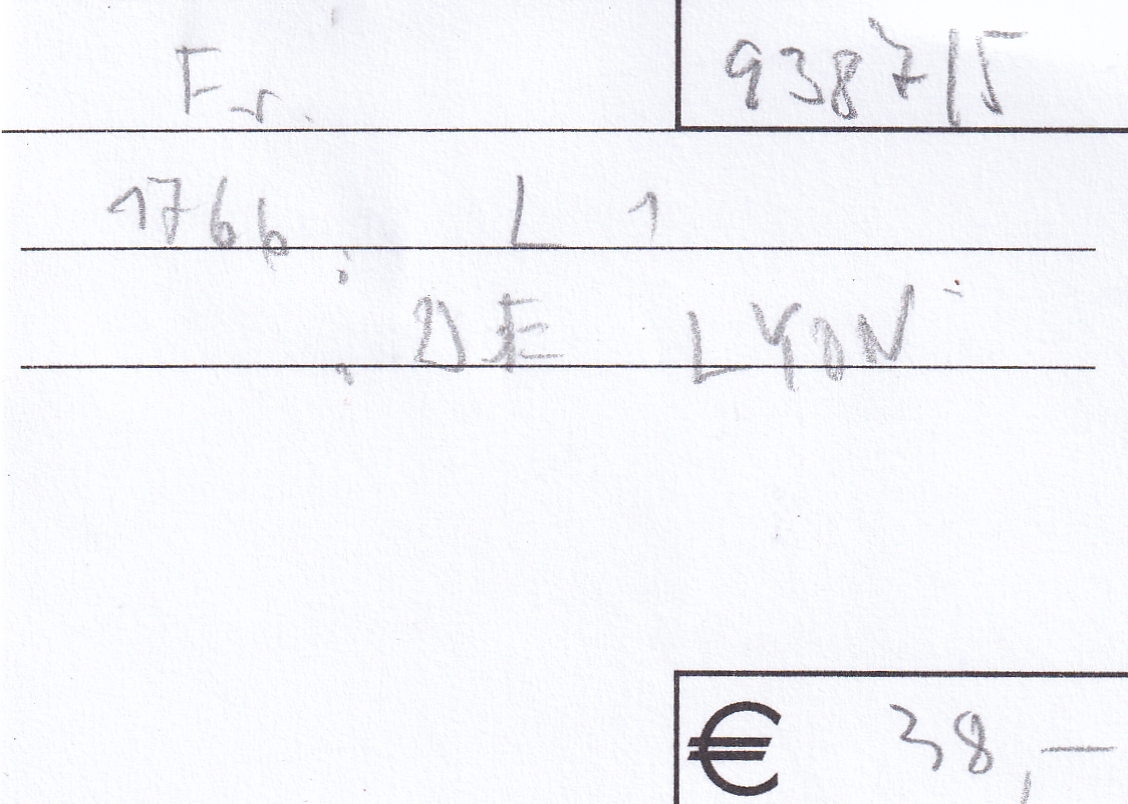 Fr. 9387/5
1766 L 1
DE LYON
€ 38,—